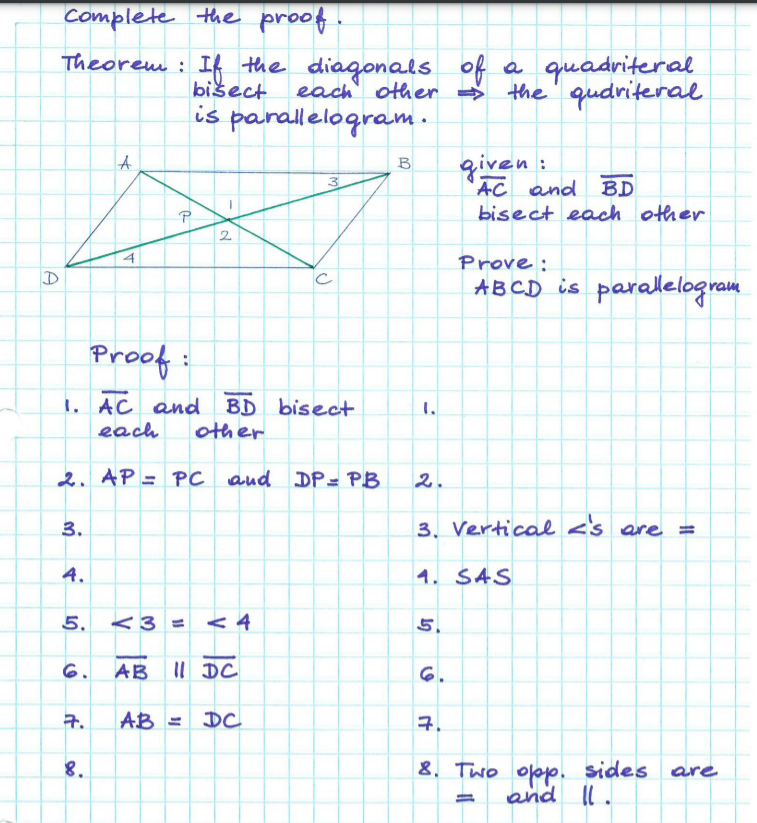 Complete the proof.
Theorem: If the diagonals of a quadriteral
bisect each other ⇒ the qudriteral
is parallelogram.
A
B
3
1
P
2
4
D
C
given:
A̅C̅ and B̅D̅
bisect each other
Prove:
ABCD is parallelogram
Proof:
1. A̅C̅ and B̅D̅ bisect
each other
1.
2. AP = PC and DP = PB
2.
3.
3. Vertical <'s are =
4.
4. SAS
5. <3 = <4
5.
6. A̅B̅ || D̅C̅
6.
7. AB = DC
7.
8.
8. Two opp. sides are
= and ||.